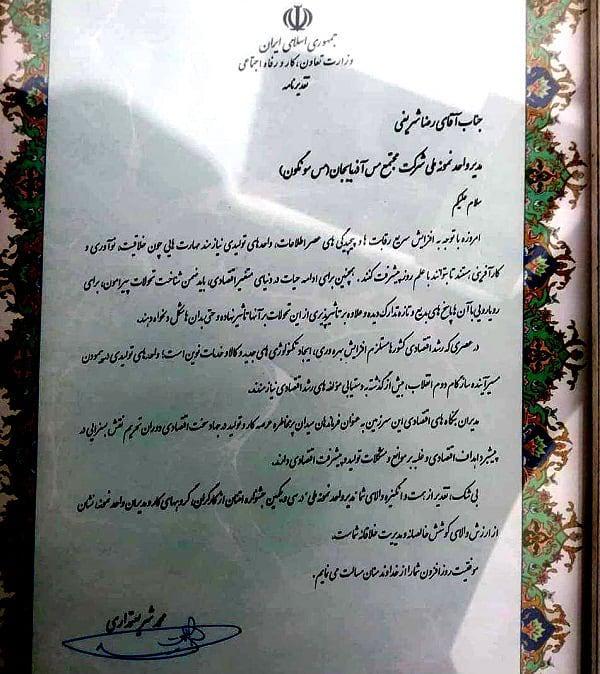 جمهوری اسلامی ایران
وزارت تعاون، کار و رفاه اجتماعی
تقدیرنامه
جناب آقای رضا شریفی
مدیر واحد نمونه ملی شرکت مجتمع مس آذربایجان (مس سونگون)
سلام علیکم
امروزه با توجه به افزایش سریع رقابت ها و پیچیدگی های عصر اطلاعات، واحدهای تولیدی نیازمند مهارت هایی چون خلاقیت، نوآوری و
کارآفرینی هستند تا بتوانند با علم روز پیشرفت کنند. همچنین برای ادامه حیات در دنیای متغیر اقتصادی، باید ضمن شناخت تحولات پیرامون، برای
رویارویی با آن ها پاسخ های بدیع و تازه تدارک دیده و علاوه بر تأثیرپذیری از این تحولات بر آنها تأثیر نهاده و حتی بدان ها شکل دلخواه دهند.
در عصری که رشد اقتصادی کشورها مستلزم افزایش بهره وری، ایجاد تکنولوژی های جدید و کالا و خدمات نوین است؛ واحدهای تولیدی در پیمودن
مسیر آینده ساز گام دوم انقلاب، بیش از گذشته به دستیابی مؤلفه های رشد اقتصادی نیازمندند.
مدیران بنگاه های اقتصادی این سرزمین به عنوان فرماندهان میدان پرمخاطره عرصه کار و تولید در جهاد سخت اقتصادی دوران تحریم نقش بسزایی در
پیشبرد اهداف اقتصادی و غلبه بر موانع و مشکلات تولید و پیشرفت اقتصادی دارند.
بی شک، تقدیر از همت و انگیزه والای شما "مدیر واحد نمونه ملی" در سی و یکمین جشنواره امتنان از کارگران، گروه های کار و مدیران واحد نمونه، نشان
از ارزش والای کوشش خالصانه و مدیریت خلاقانه شماست.
موفقیت روزافزون شما را از خداوند منان مسألت می نمایم.
محمد شریعتمداری